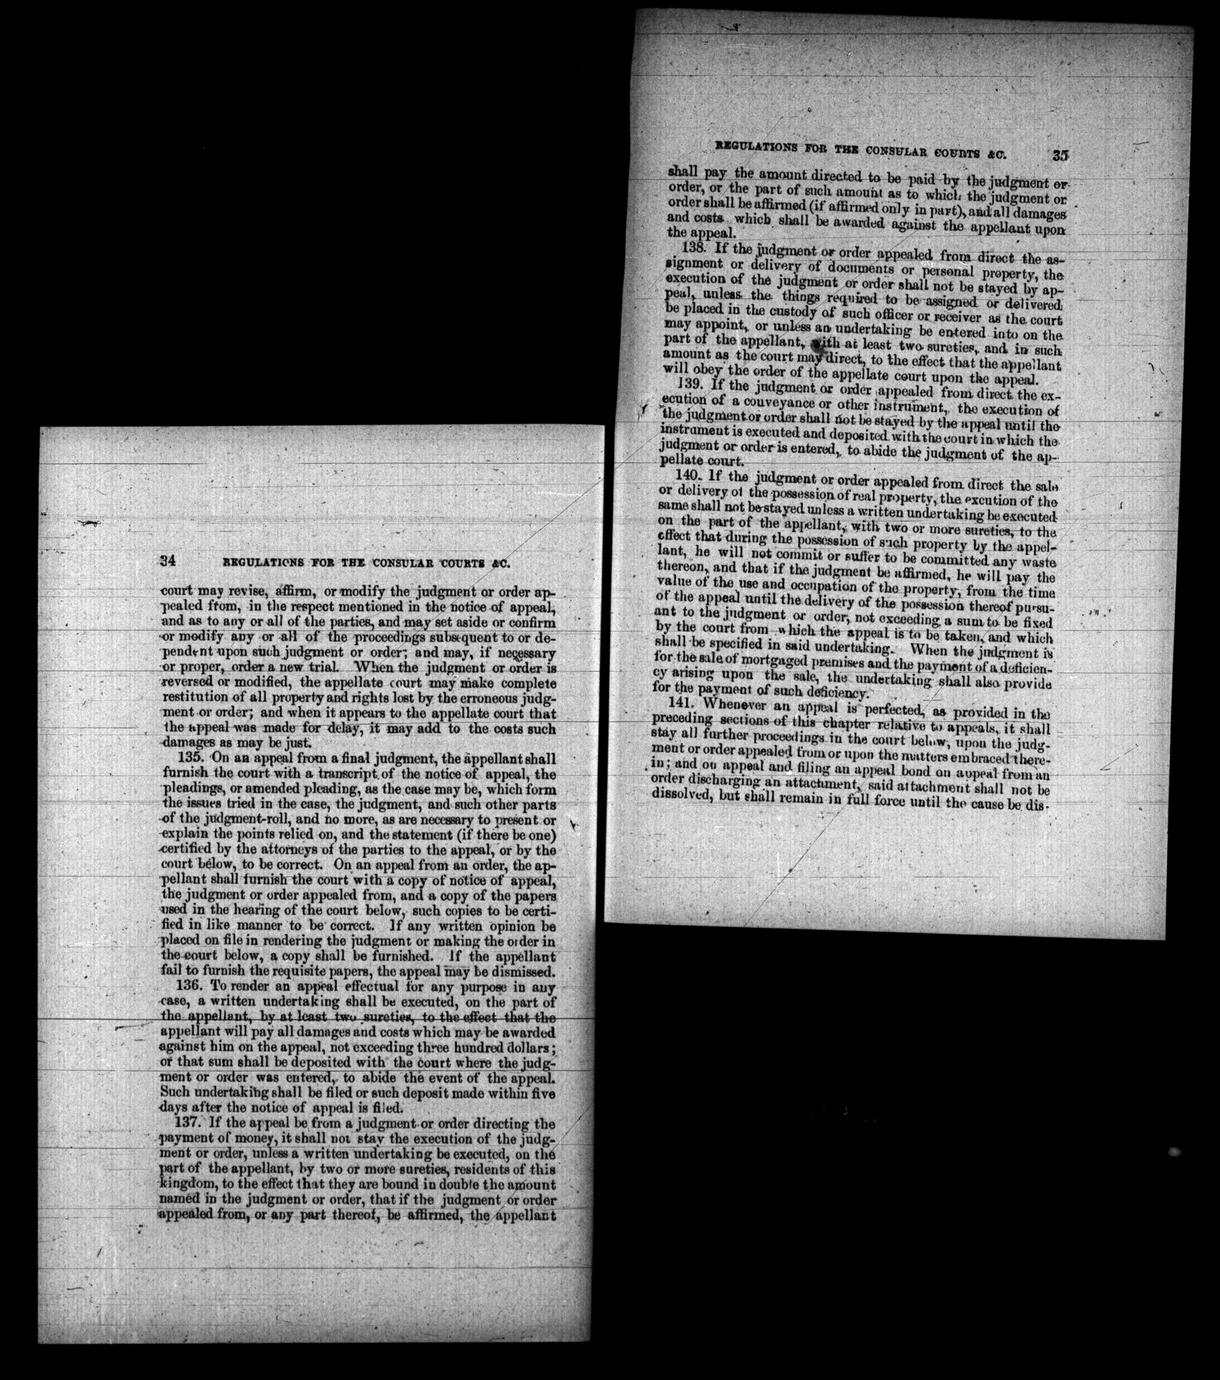 34 REGULATIONS FOR THE CONSULAR COURTS &C.
court may revise, affirm, or modify the judgment or order ap-
pealed from, in the respect mentioned in the notice of appeal,
and as to any or all of the parties, and may set aside or confirm
or modify any or all of the proceedings subsequent to or de-
pendent upon such judgment or order; and may, if necessary
or proper, order a new trial. When the judgment or order is
reversed or modified, the appellate court may make complete
restitution of all property and rights lost by the erroneous judg-
ment or order; and when it appears to the appellate court that
the appeal was made for delay, it may add to the costs such
damages as may be just.
135. On an appeal from a final judgment, the appellant shall
furnish the court with a transcript of the notice of appeal, the
pleadings, or amended pleading, as the case may be, which form
the issues tried in the case, the judgment, and such other parts
of the judgment-roll, and no more, as are necessary to present or
explain the points relied on, and the statement (if there be one)
certified by the attorneys of the parties to the appeal, or by the
court below, to be correct. On an appeal from an order, the ap-
pellant shall furnish the court with a copy of notice of appeal,
the judgment or order appealed from, and a copy of the papers
used in the hearing of the court below, such copies to be certi-
fied in like manner to be correct. If any written opinion be
placed on file in rendering the judgment or making the order in
the court below, a copy shall be furnished. If the appellant
fail to furnish the requisite papers, the appeal may be dismissed.
136. To render an appeal effectual for any purpose in any
case, a written undertaking shall be executed, on the part of
the appellant, by at least two sureties, to the effect that the
appellant will pay all damages and costs which may be awarded
against him on the appeal, not exceeding three hundred dollars;
or that sum shall be deposited with the court where the judg-
ment or order was entered, to abide the event of the appeal.
Such undertaking shall be filed or such deposit made within five
days after the notice of appeal is filed.
137. If the appeal be from a judgment or order directing the
payment of money, it shall not stay the execution of the judg-
ment or order, unless a written undertaking be executed, on the
part of the appellant, by two or more sureties, residents of this
kingdom, to the effect that they are bound in double the amount
named in the judgment or order, that if the judgment or order
appealed from, or any part thereof, be affirmed, the appellant
REGULATIONS FOR THE CONSULAR COURTS &C. 35
shall pay the amount directed to be paid by the judgment or
order, or the part of such amount as to which the judgment or
order shall be affirmed (if affirmed only in part), and all damages
and costs which shall be awarded against the appellant upon
the appeal.
138. If the judgment or order appealed from direct the as-
signment or delivery of documents or personal property, the
execution of the judgment or order shall not be stayed by ap-
peal, unless the things required to be assigned or delivered
be placed in the custody of such officer or receiver as the court
may appoint, or unless an undertaking be entered into on the
part of the appellant, with at least two sureties, and in such
amount as the court may direct, to the effect that the appellant
will obey the order of the appellate court upon the appeal.
139. If the judgment or order appealed from direct the ex-
ecution of a conveyance or other instrument, the execution of
the judgment or order shall not be stayed by the appeal until the
instrument is executed and deposited with the court in which the
judgment or order is entered, to abide the judgment of the ap-
pellate court.
140. If the judgment or order appealed from direct the sale
or delivery of the possession of real property, the excution of the
same shall not be stayed unless a written undertaking be executed
on the part of the appellant, with two or more sureties, to the
effect that during the possession of such property by the appel-
lant, he will not commit or suffer to be committed any waste
thereon, and that if the judgment be affirmed, he will pay the
value of the use and occupation of the property, from the time
of the appeal until the delivery of the possession thereof pursu-
ant to the judgment or order, not exceeding a sum to be fixed
by the court from which the appeal is to be taken, and which
shall be specified in said undertaking. When the judgment is
for the sale of mortgaged premises and the payment of a deficien-
cy arising upon the sale, the undertaking shall also provide
for the payment of such deficiency.
141. Whenever an appeal is perfected, as provided in the
preceding sections of this chapter relative to appeals, it shall
stay all further proceedings in the court below, upon the judg-
ment or order appealed from or upon the matters embraced there-
in; and on appeal and filing an appeal bond on appeal from an
order discharging an attachment, said attachment shall not be
dissolved, but shall remain in full force until the cause be dis-